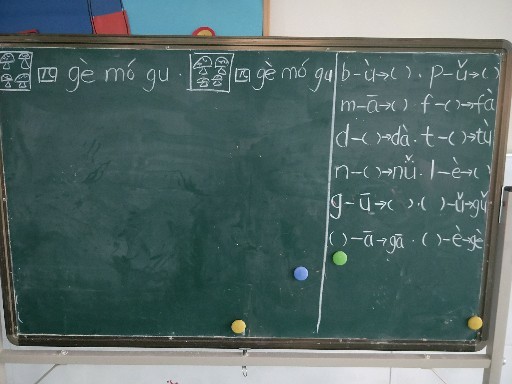 四 gè mó gu . 四 gè mó gu
b-ù→( ) . p-ǔ→( )
m-ā→( ) . f-( )→fà
d-( )→dà . t-( )→tù
n-( )→nǚ . l-è→( )
g-ū→( ) . ( )-ǔ→gǔ
( )-ā→gā . ( )-è→gè